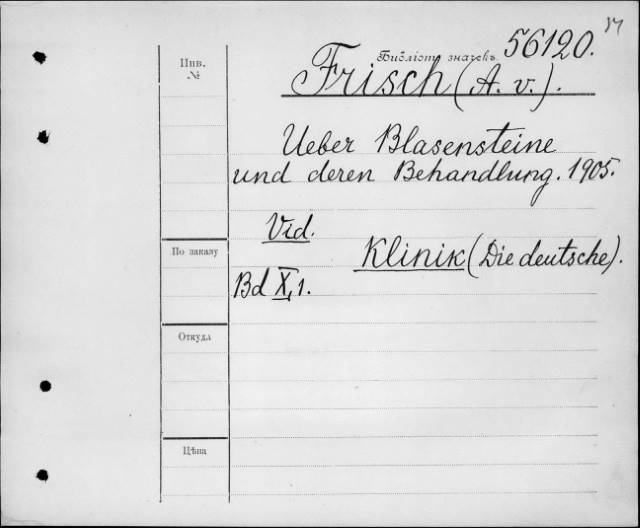 37
Библіотч. значекъ 56120.
Инв.
№
Frisch (A. v.).
Ueber Blasensteine
und deren Behandlung. 1905.
Vid.
По заказу
Klinik (Die deutsche).
Bd X, 1.
Откуда
Цѣна